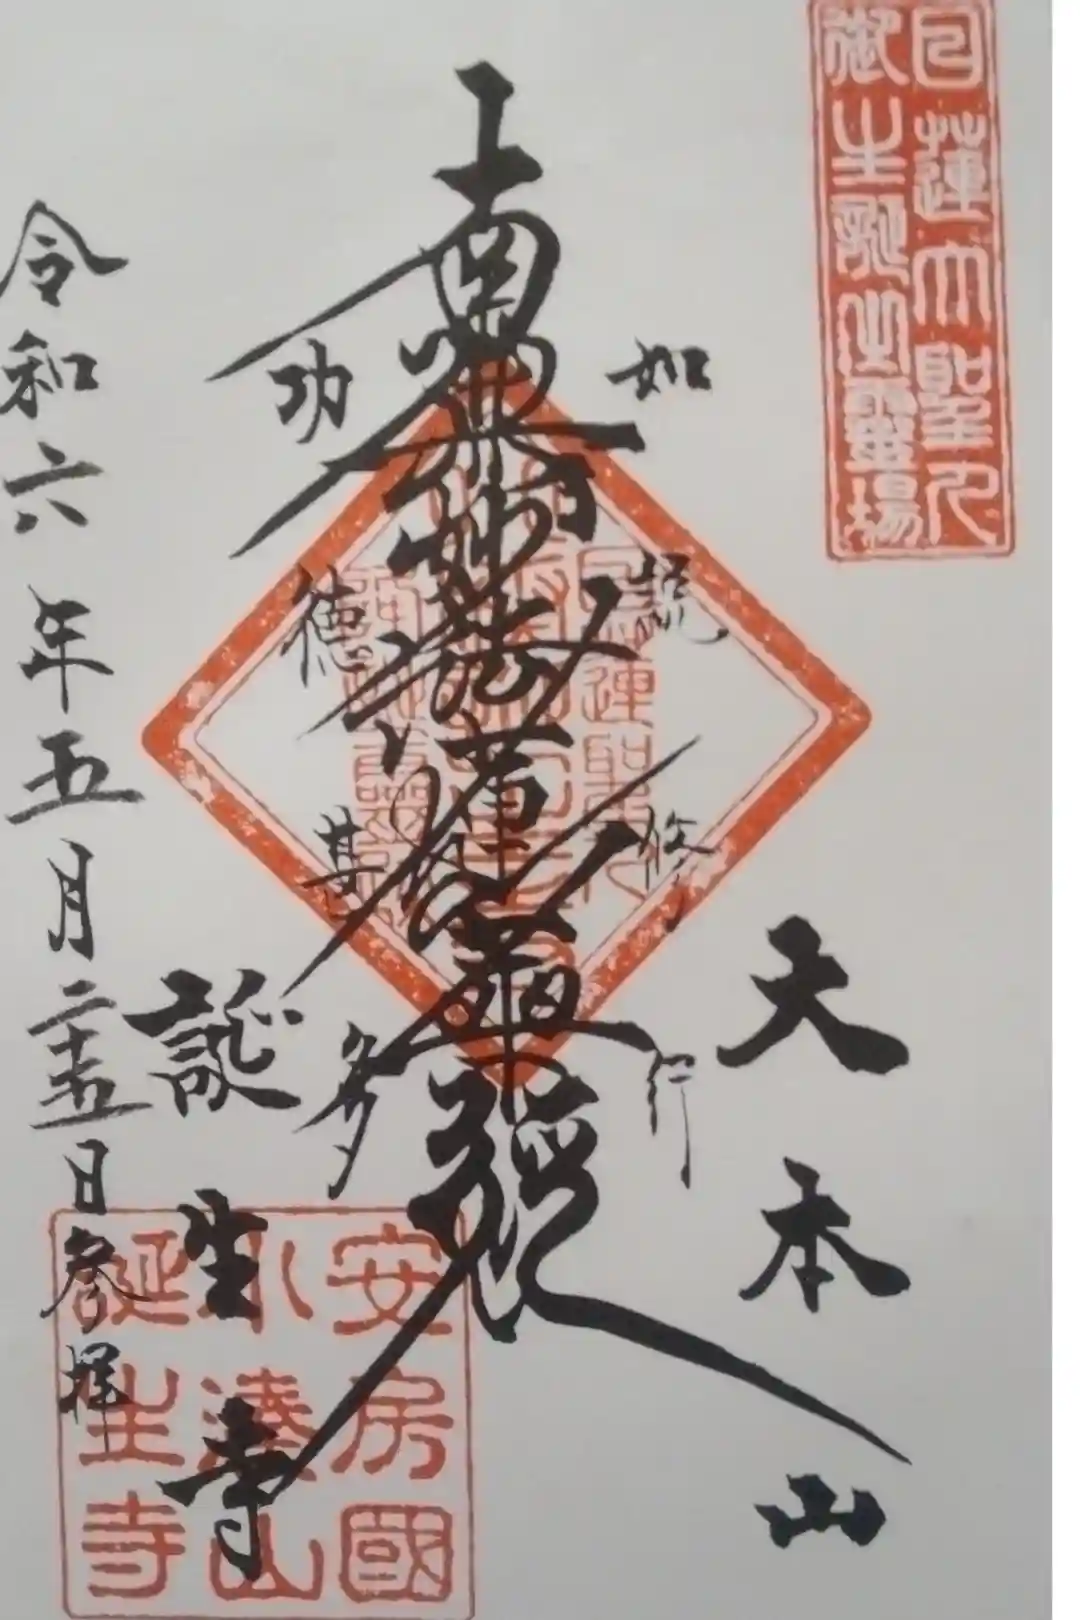 日蓮大聖人
御生誕之霊場
大本山
如説修行
南無妙法蓮華経
功徳甚多
誕生寺
令和六年五月二十五日参拝
安房國
小湊山
誕生寺